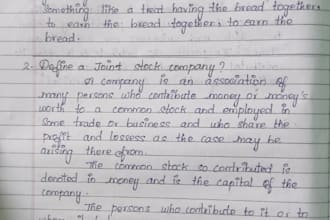 something like a treat having the bread together,
to earn the bread together, to earn the
bread.
2. Define a Joint stock company?
A company is an association of
many persons who contribute money or money's
worth to a common stock and employed in
some trade or business and who share the
profit and lossess as the case may be
arising there from.
The common stock so contributed is
denoted in money and is the capital of the
company.
The persons who contribute to it or to